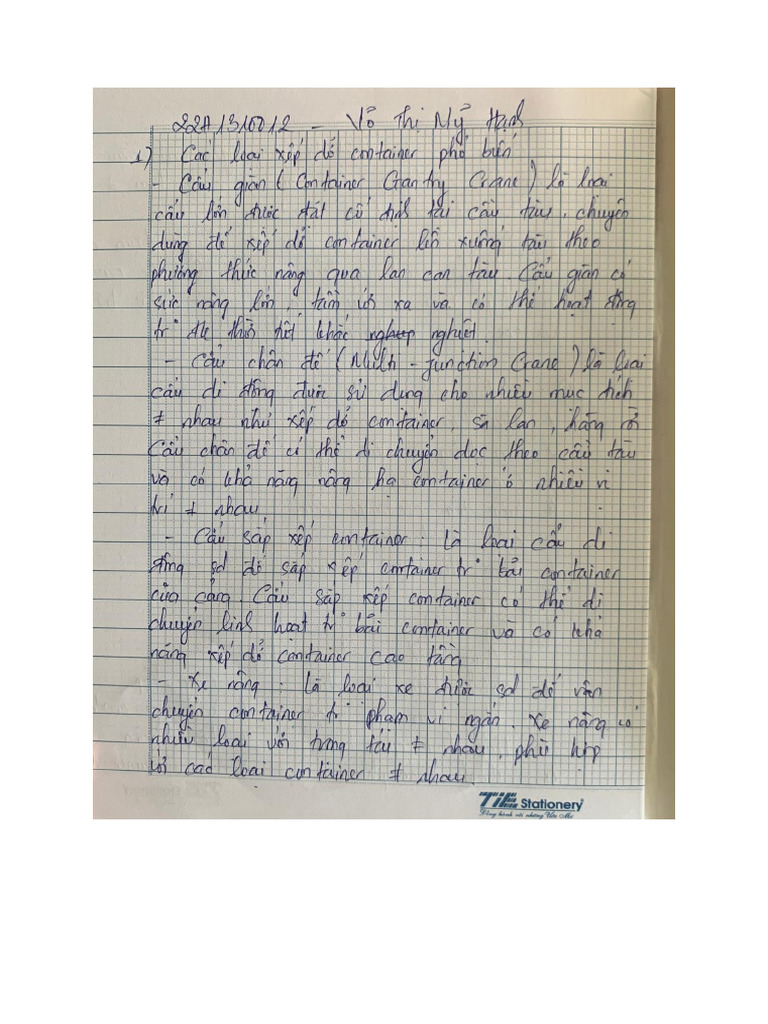 22A1310012 - Võ Thị Mỹ Hạnh
1) Các loại xếp dỡ container phổ biến
- Cẩu giàn (Container Gantry Crane) là loại
cẩu lớn được đặt cố định tại cầu tàu, chuyên
dùng để xếp dỡ container lên xuống tàu theo
phương thức nâng qua lan can tàu. Cẩu giàn có
sức nâng lớn, tầm với xa và có thể hoạt động
tr° đk thời tiết khắc nghiệt.
- Cẩu chân đế (Multi-function Crane) là loại
cẩu di động được sử dụng cho nhiều mục đích
≠ nhau như xếp dỡ container, sà lan, hàng rời
Cẩu chân đế có thể di chuyển dọc theo cầu tàu
và có khả năng nâng hạ container ở nhiều vị
trí ≠ nhau.
- Cẩu sắp xếp container: là loại cẩu di
động sd để sắp xếp container tr° bãi container
của cảng. Cẩu sắp xếp container có thể di
chuyển linh hoạt tr° bãi container và có khả
năng xếp dỡ container cao tầng
- Xe nâng: là loại xe được sd để vận
chuyển container tr° phạm vi ngắn. Xe nâng có
nhiều loại với trọng tải ≠ nhau, phù hợp
với các loại container ≠ nhau.
TiE Stationery
Đồng hành với những Ước Mơ